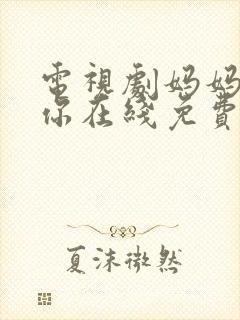 電視劇妈妈
你在綫免費
夏沫微然